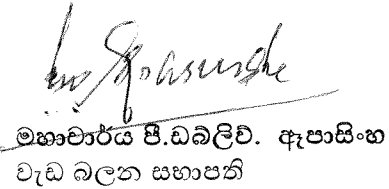 මහාචාර්ය පී.ඩබ්ලිව්. ඈපාසිංහ
වැඩ බලන සභාපති